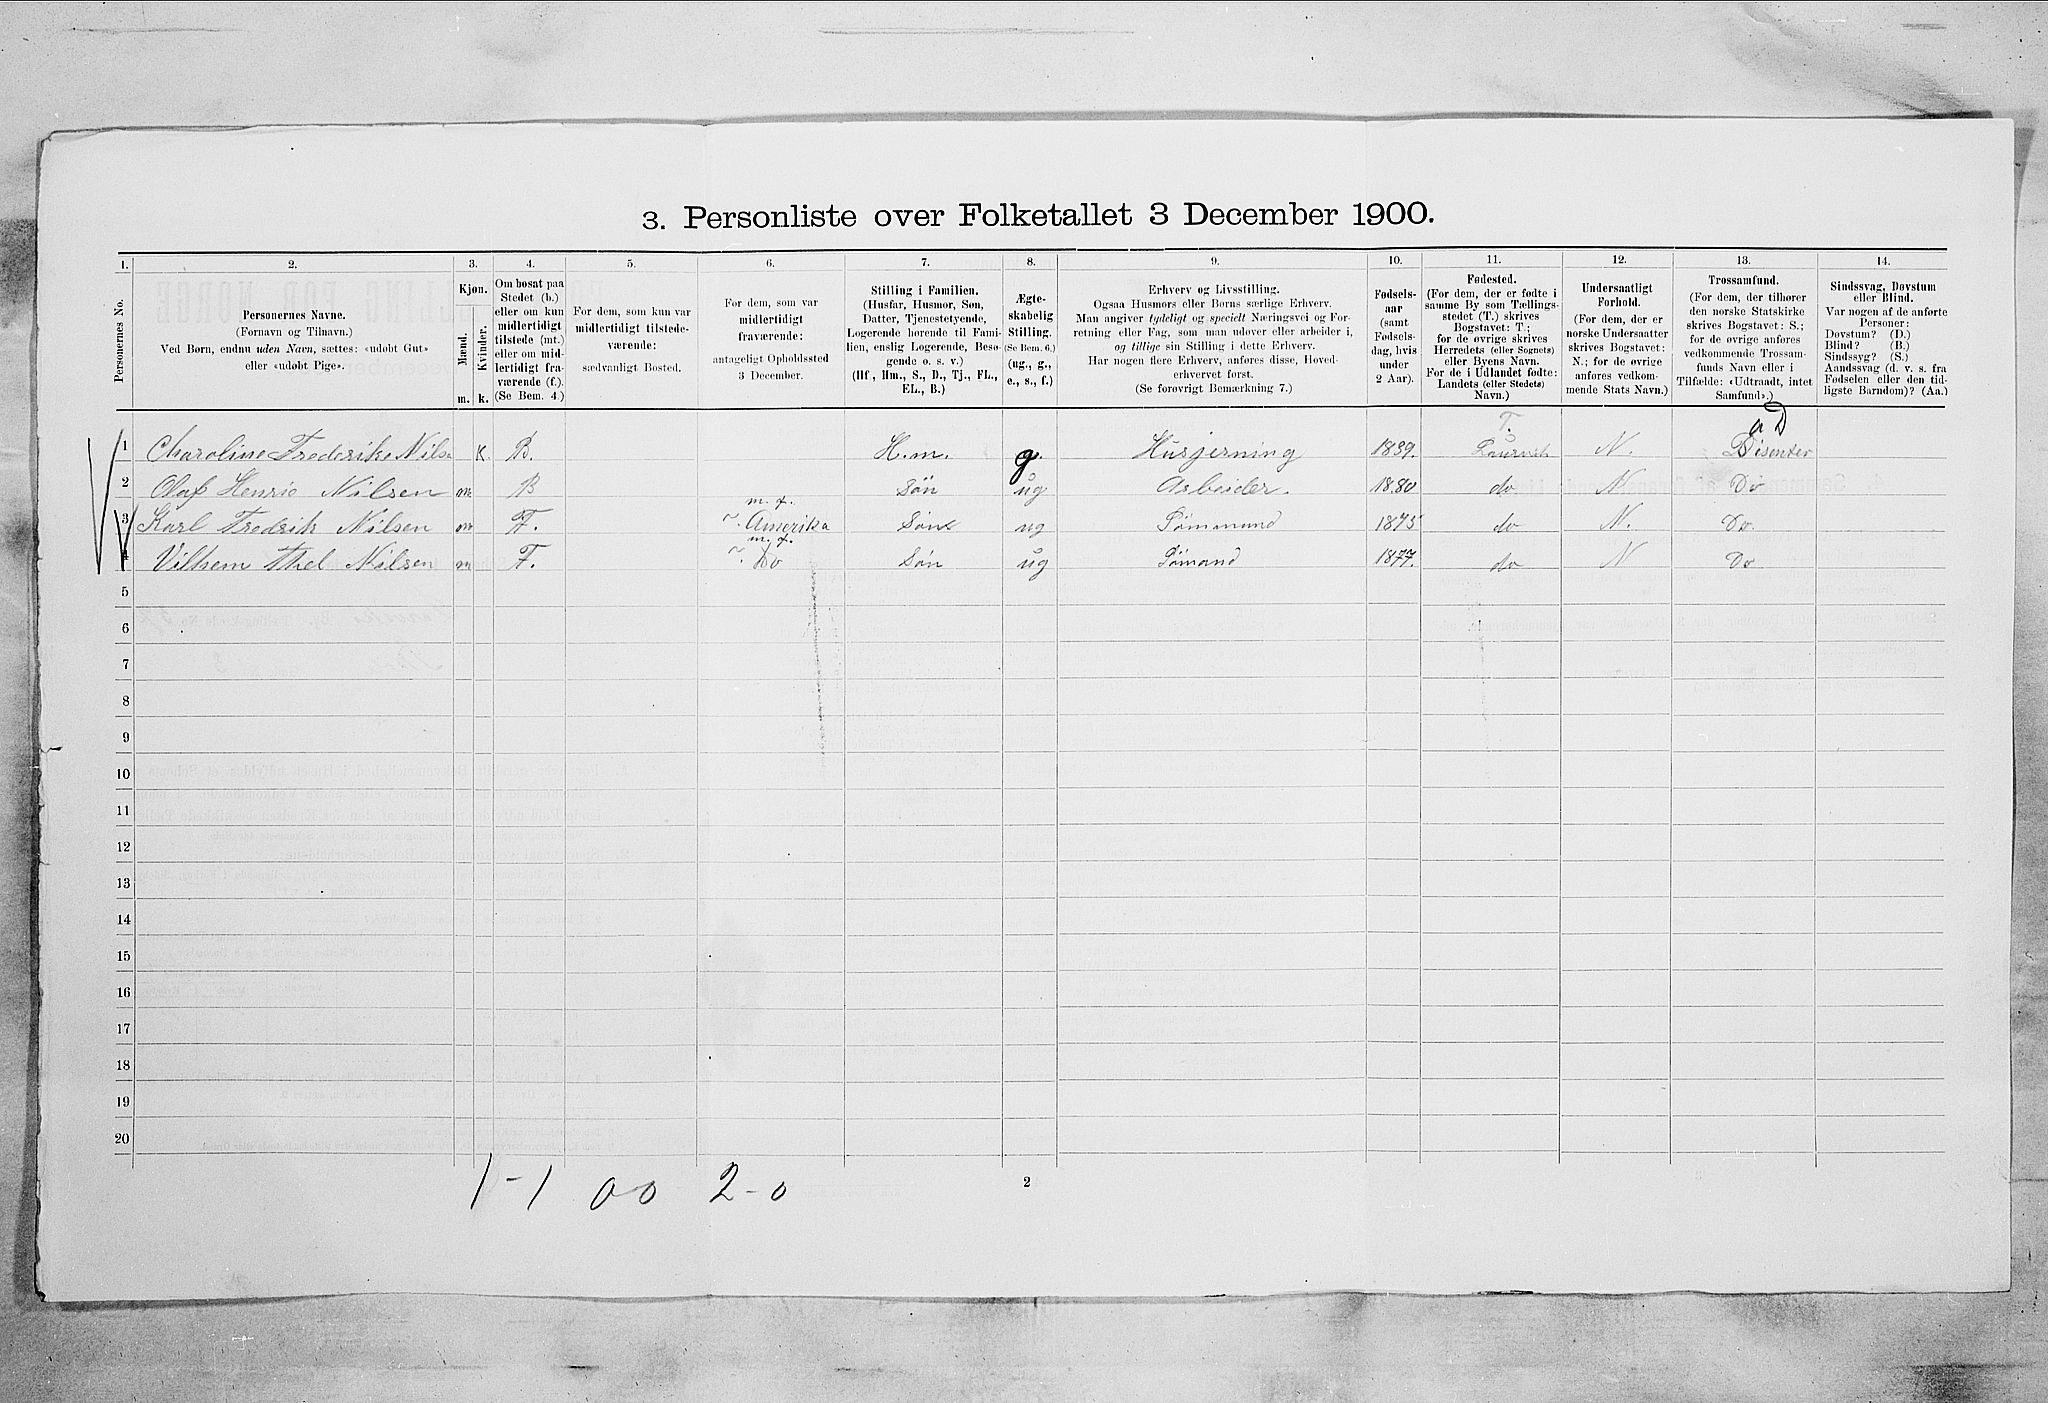 3. Personliste over Folketallet 3 December 1900.
1. 2. 3. 4. 5. 6. 7. 8. 9. 10. 11. 12. 13. 14.
Personernes No.
Personernes Navne.
(Fornavn og Tilnavn.)
Ved Børn, endnu uden Navn, sættes: «udøbt Gut»
eller «udøbt Pige».
Kjøn.
Mænd.
Kvinder.
m. k.
Om bosat paa
Stedet (b.)
eller om kun
midlertidigt
tilstede (mt.)
eller om mid-
lertidigt fra-
værende (f.).
(Se Bem. 4.)
For dem, som kun var
midlertidigt tilstede-
værende:
sædvanligt Bosted.
For dem, som var
midlertidigt
fraværende:
antageligt Opholdssted
3 December.
Stilling i Familien.
(Husfar, Husmor, Søn,
Datter, Tjenestetyende,
Logerende hørende til Fami-
lien, enslig Logerende, Besø-
gende o. s. v.)
(Hf, Hm., S., D., Tj., FL.,
EL., B.)
Ægte-
skabelig
Stilling.
(Se Bem. 6.)
(ug., g.,
e., s., f.)
Erhverv og Livsstilling.
Ogsaa Husmors eller Børns særlige Erhverv.
Man angiver tydeligt og specielt Næringsvei og For-
retning eller Fag, som man udøver eller arbeider i,
og tillige sin Stilling i dette Erhverv.
Har nogen flere Erhverv, anføres disse, Hoved-
erhvervet først.
(Se forøvrigt Bemærkning 7.)
Fødsels-
aar
(samt
Fødsels-
dag, hvis
under
2 Aar).
Fødested.
(For dem, der er fødte i
samme By som Tællings-
stedet (T.) skrives
Bogstavet: T.;
for de øvrige skrives
Herredets (eller Sognets)
eller Byens Navn.
For de i Udlandet fødte:
Landets (eller Stedets)
Navn.)
Undersaatligt
Forhold.
(For dem, der er
norske Undersaatter
skrives Bogstavet:
N.; for de øvrige
anføres vedkom-
mende Stats Navn.)
Trossamfund.
(For dem, der tilhører
den norske Statskirke
skrives Bogstavet: S.;
for de øvrige anføres
vedkommende Trossam-
funds Navn eller i
Tilfælde: «Udtraadt, intet
Samfund».)
Sindssvag, Døvstum
eller Blind.
Var nogen af de anførte
Personer:
Døvstum? (D.)
Blind? (B.)
Sindssyg? (S.)
Aandssvag (d. v. s. fra
Fødselen eller den tid-
ligste Barndom)? (Aa.)
T. D
1 Charoline Frederike Nils K B. H.m. g. Husjerning 1839. Laurvik N. Disenter
2 Olaf Henric Nilsen m B Søn ug Arbeider. 1880 do N Do
3 Karl Fredrik Nilsen m F. Amerika Søn ug Sømmand 1875 do N. Do.
4 Vilhem Nilsen m F. Do Søn ug Sømand 1877. do N Do
5
6
7
8
9
10
11
12
13
14
15
16
17
18
19
20
1-1 00 2-0
2